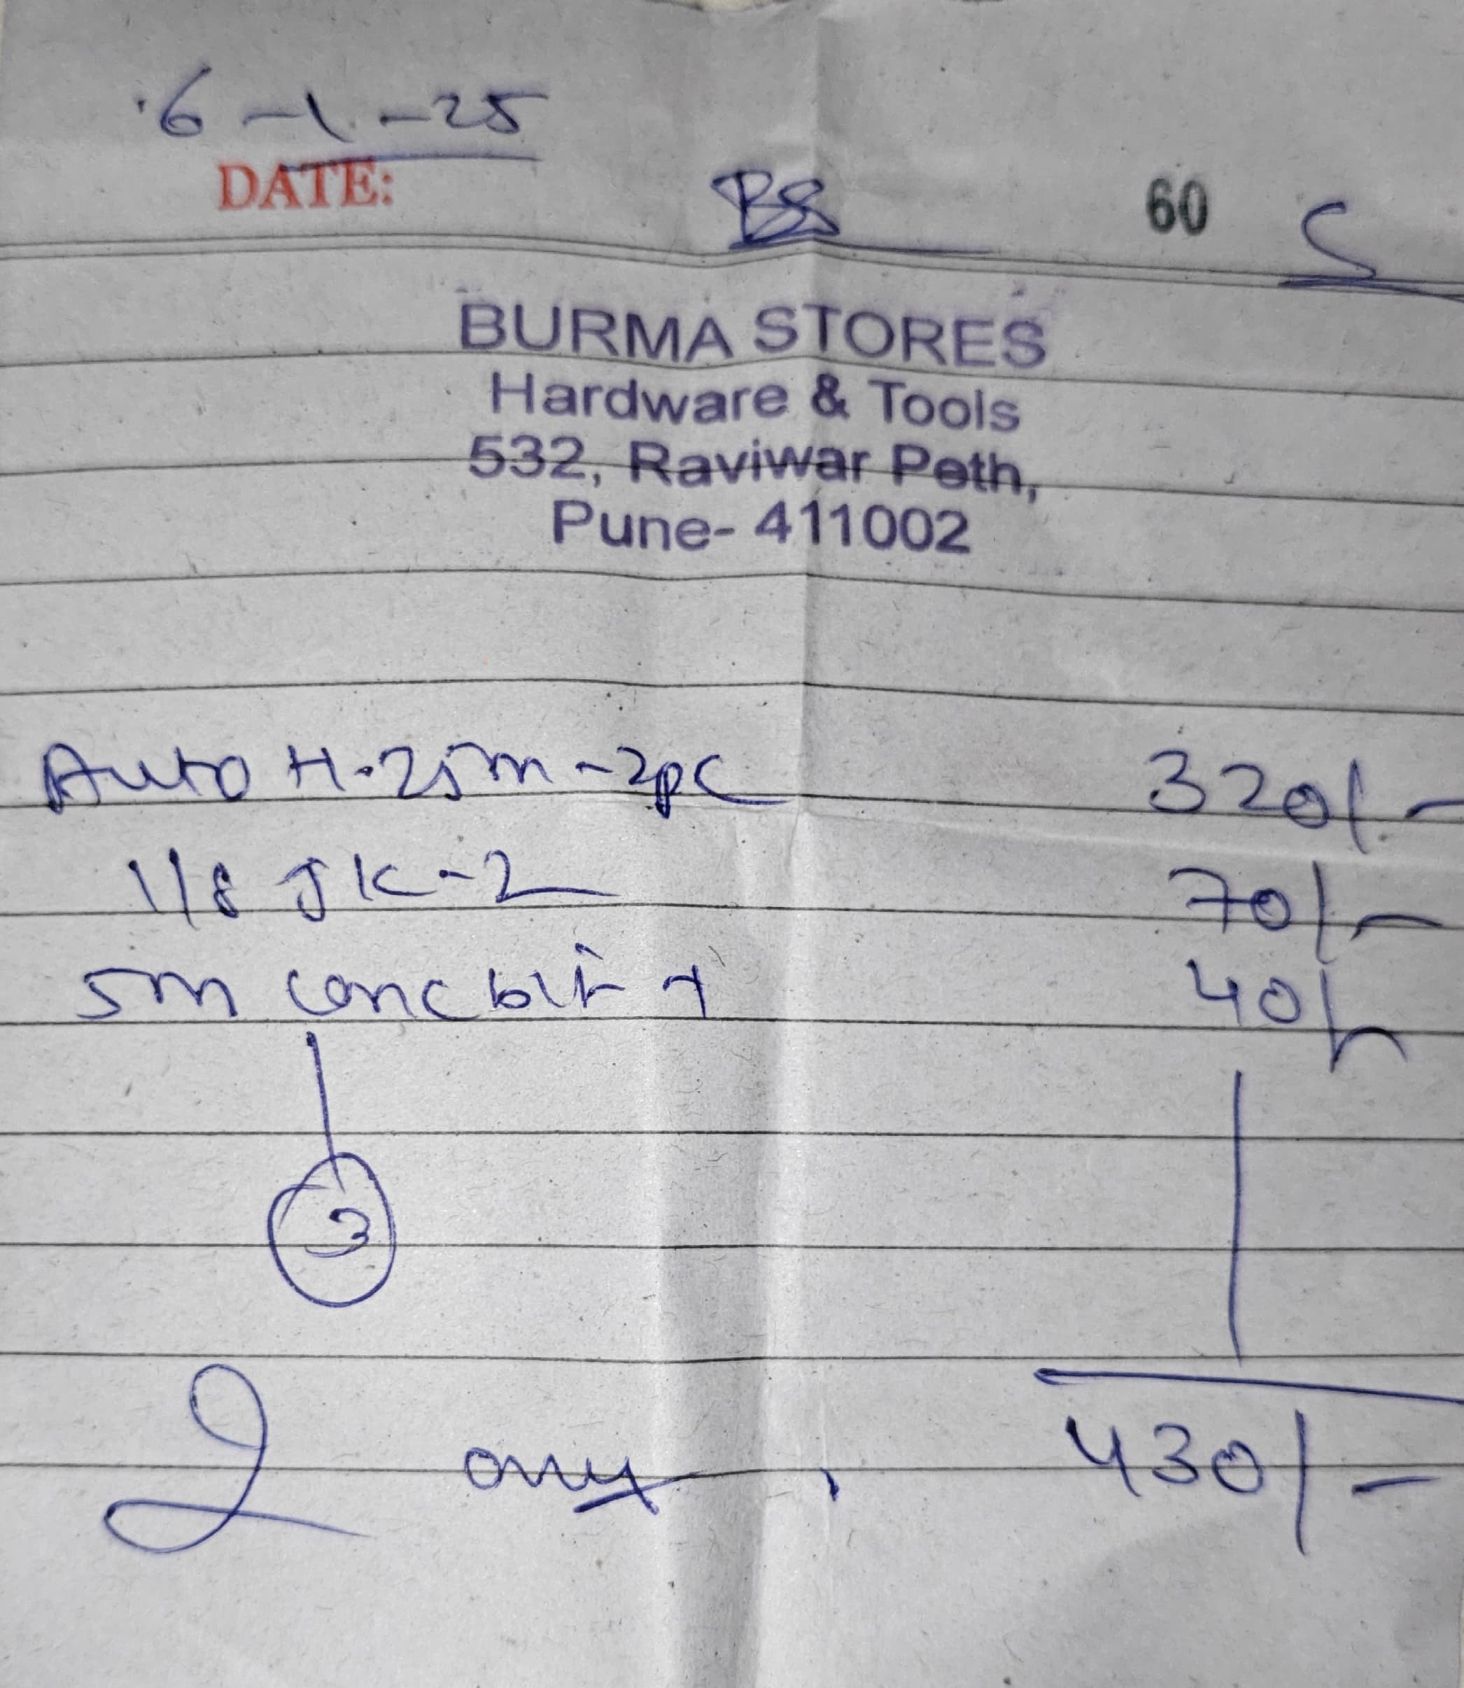 6-1-25
DATE: BS 60 S
BURMA STORES
Hardware & Tools
532, Raviwar Peth,
Pune- 411002
Auto H.25m-2pc 320/-
1/8 JK-2 70/-
5m conc bit 1 40/-
3
only 430/-